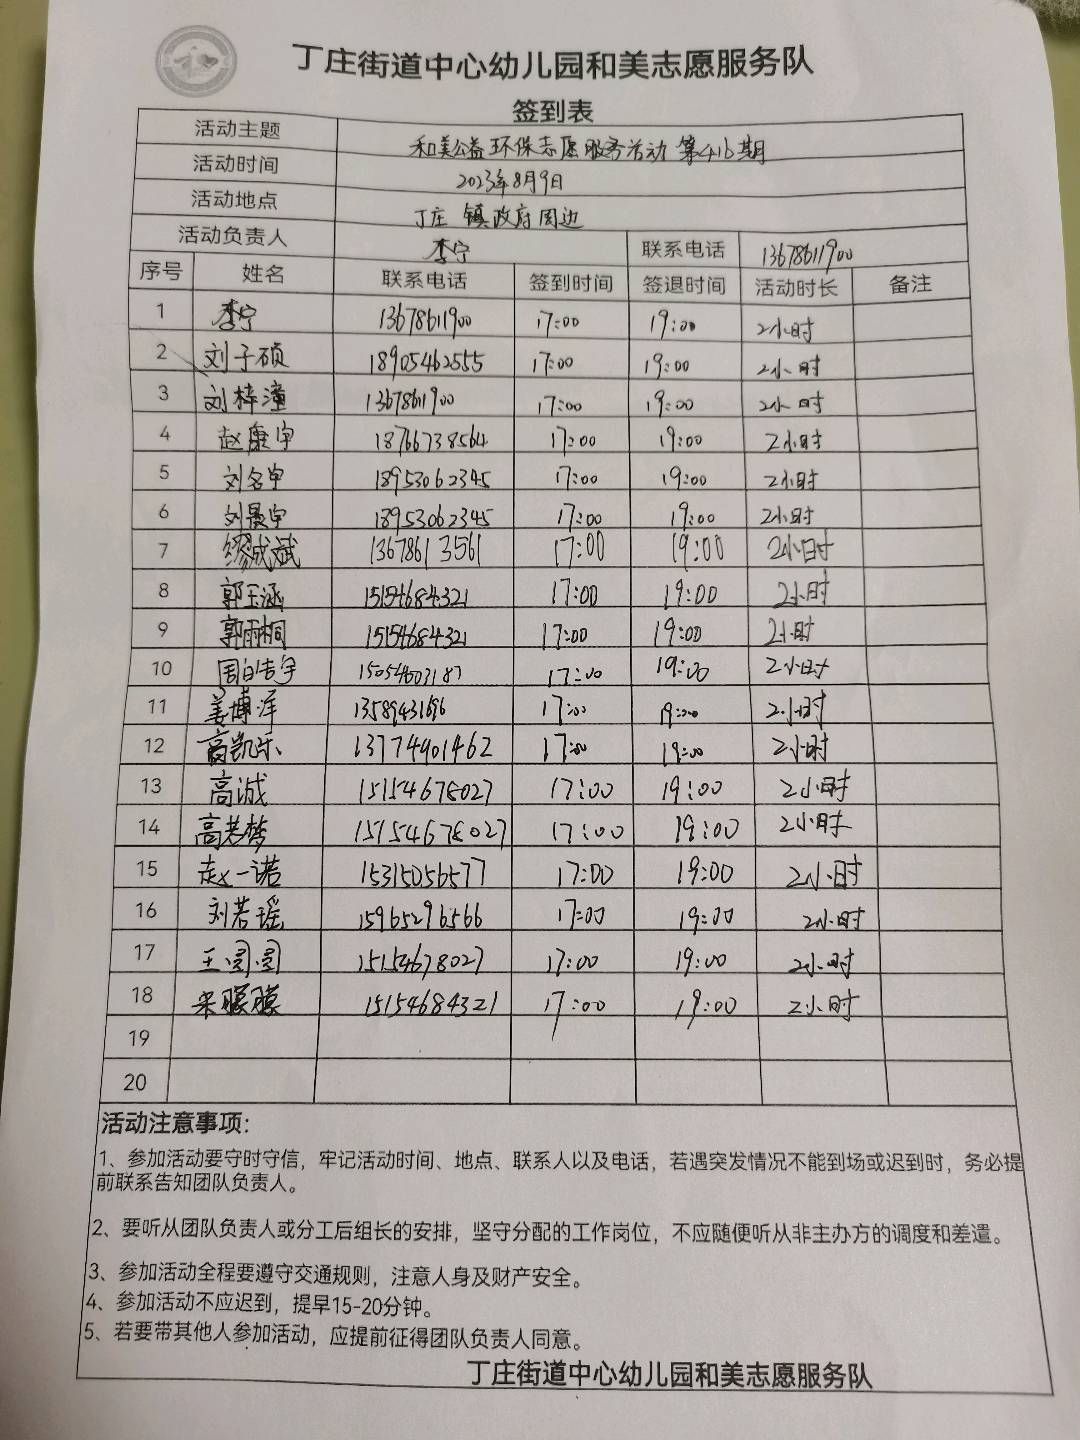 丁庄街道中心幼儿园和美志愿服务队
签到表
活动主题 和美公益环保志愿服务活动 第416期
活动时间 2023年8月9日
活动地点 丁庄镇政府周边
活动负责人 李宁 联系电话 13678611900
序号 姓名 联系电话 签到时间 签退时间 活动时长 备注
1 李宁 13678611900 17:00 19:00 2小时
2 刘子硕 18905462555 17:00 19:00 2小时
3 刘梓潼 1367861900 17:00 19:00 2小时
4 赵康宇 18766738564 17:00 19:00 2小时
5 刘名宇 18953062345 17:00 19:00 2小时
6 刘晟宇 18953062345 17:00 19:00 2小时
7 缪成斌 13678613561 17:00 19:00 2小时
8 郭玉涵 15154684321 17:00 19:00 2小时
9 郭雨桐 15154684321 17:00 19:00 2小时
10 周皓宇 15054603187 17:00 19:00 2小时
11 姜博洋 13589431696 17:00 19:00 2小时
12 高凯乐 13774901462 17:00 19:00 2小时
13 高诚 15154678027 17:00 19:00 2小时
14 高若梦 15154678027 17:00 19:00 2小时
15 赵一诺 15315056577 17:00 19:00 2小时
16 刘若瑶 15965296566 17:00 19:00 2小时
17 王圆圆 15154678027 17:00 19:00 2小时
18 宋朦朦 15154684321 17:00 19:00 2小时
19
20
活动注意事项:
1、参加活动要守时守信，牢记活动时间、地点、联系人以及电话，若遇突发情况不能到场或迟到时，务必提
前联系告知团队负责人。
2、要听从团队负责人或分工后组长的安排，坚守分配的工作岗位，不应随便听从非主办方的调度和差遣。
3、参加活动全程要遵守交通规则，注意人身及财产安全。
4、参加活动不应迟到，提早15-20分钟。
5、若要带其他人参加活动，应提前征得团队负责人同意。
丁庄街道中心幼儿园和美志愿服务队